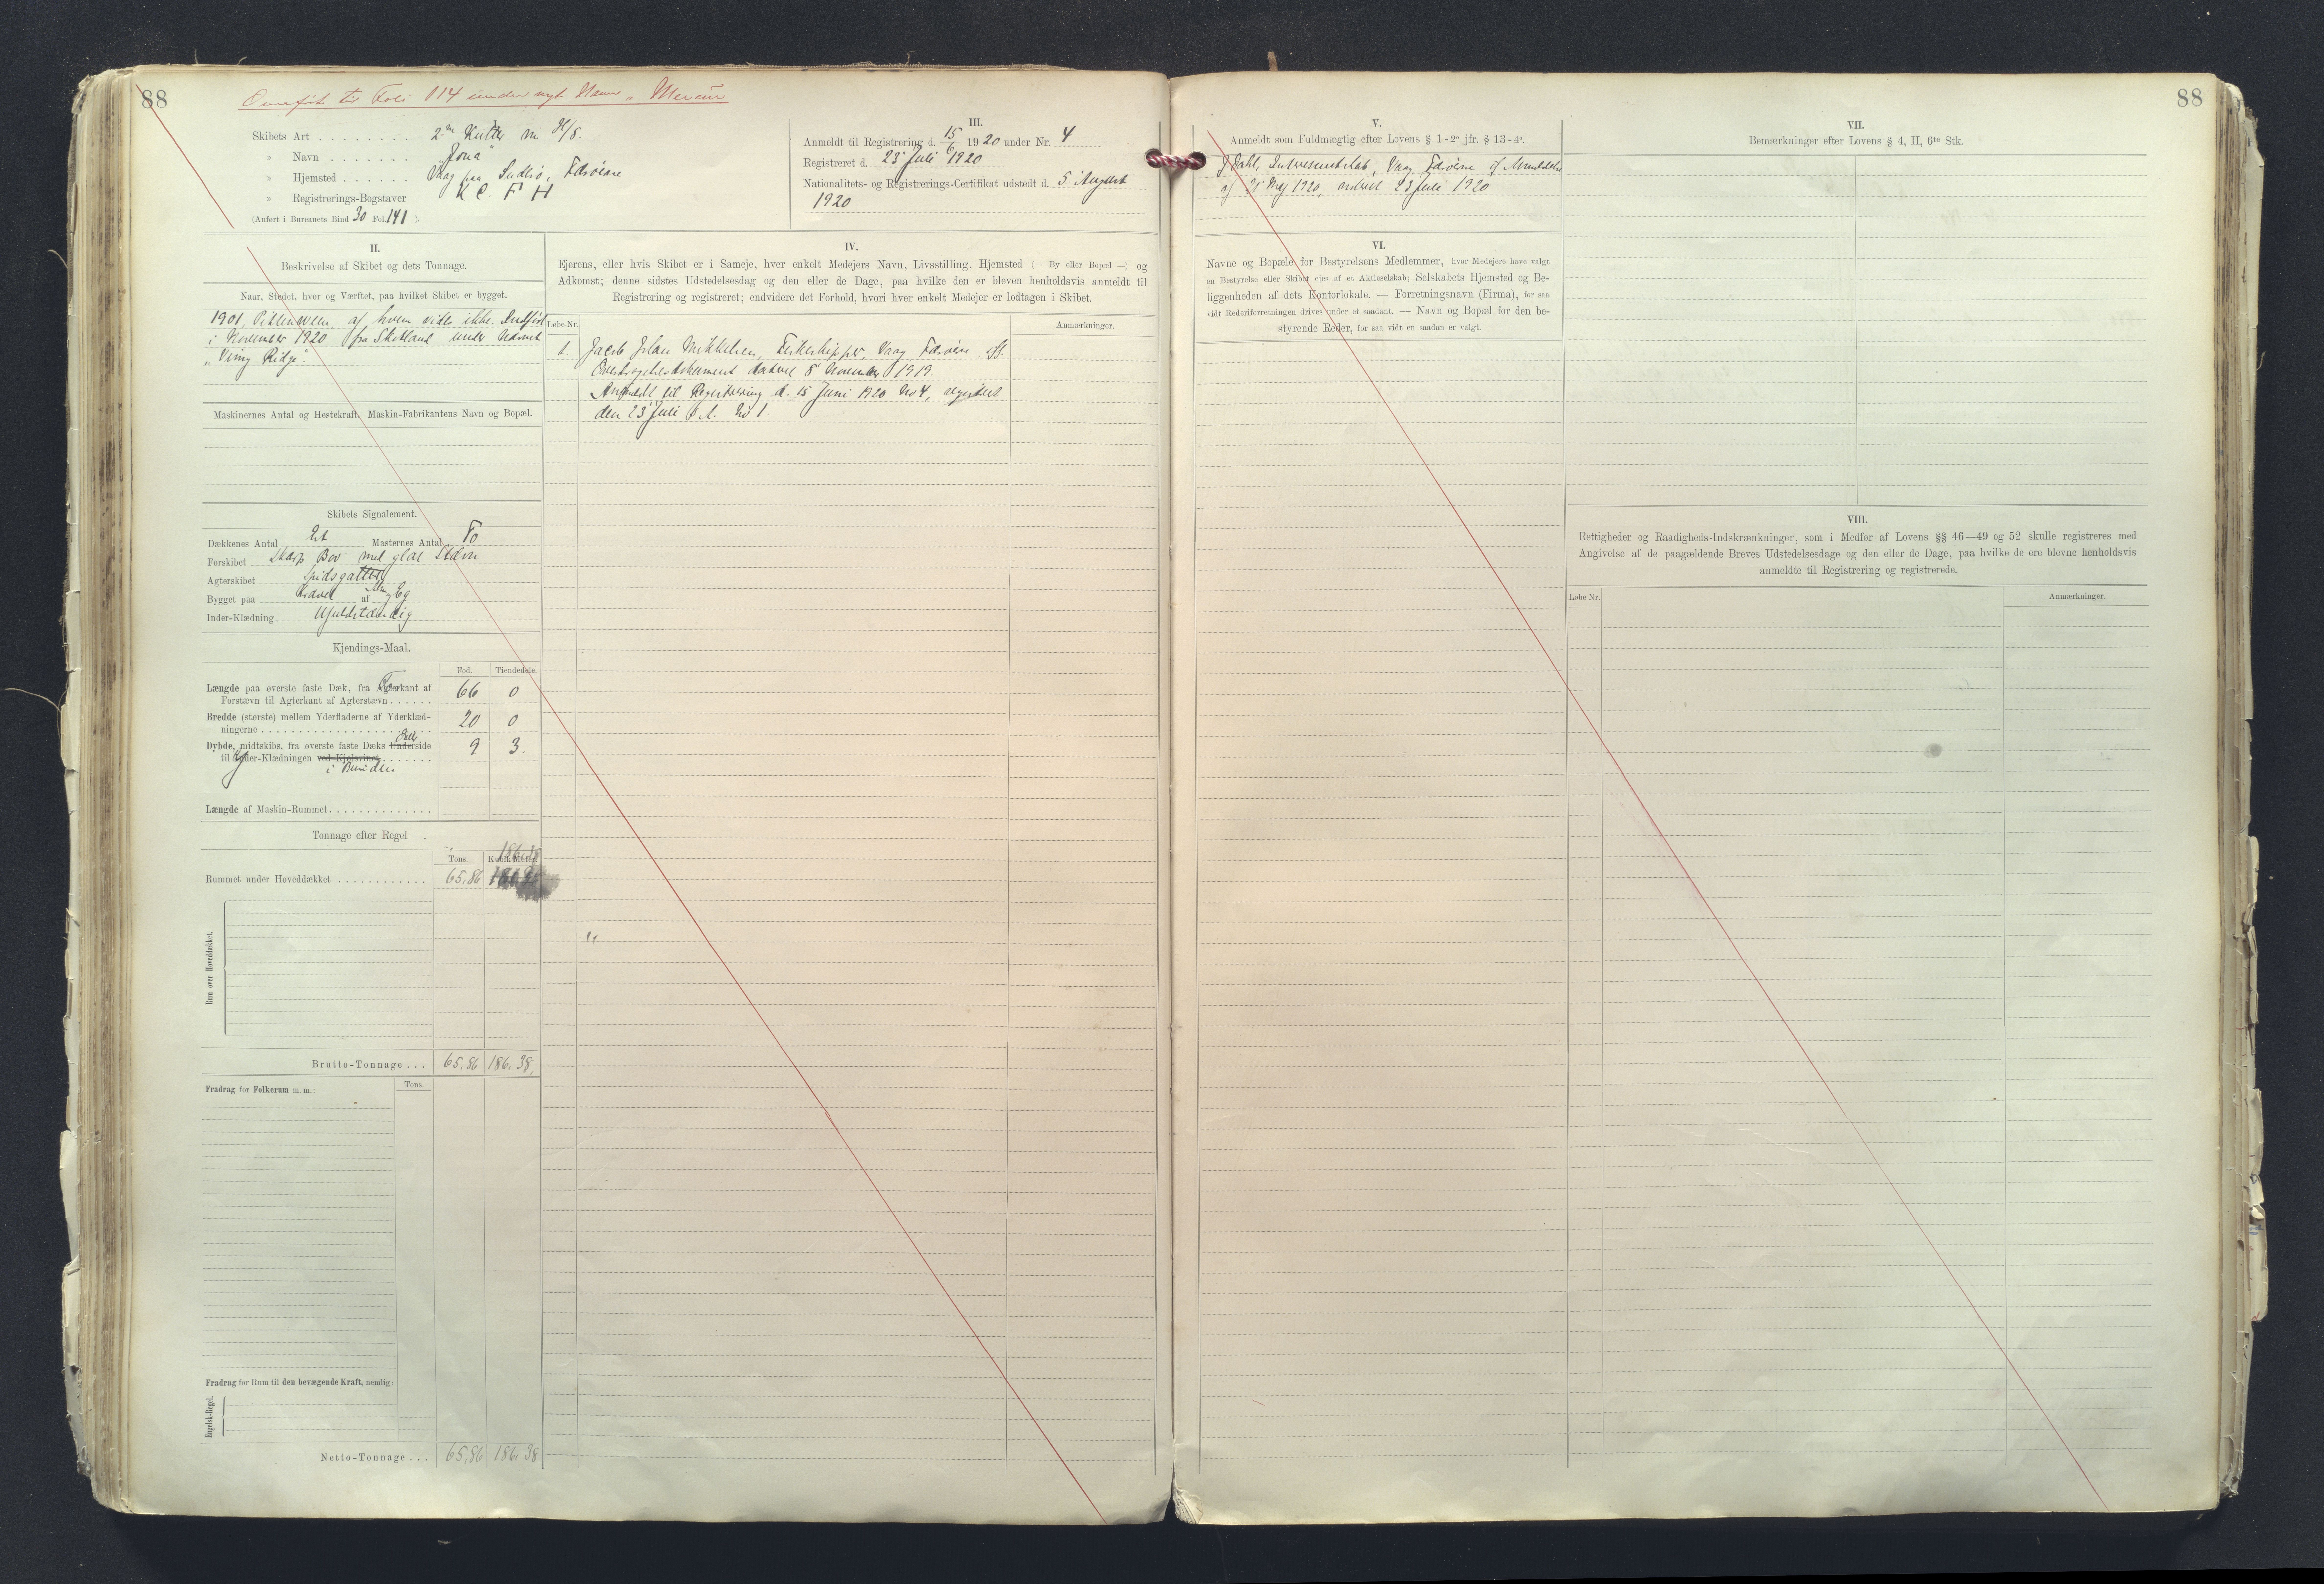 88
Overført til Folio 114 under nyt Navn „Mercur"
Skibets Art . . . . . . . . 2 m Kutter m. H/S.
» Navn . . . . . . . „Jona"
» Hjemsted . . . . . . Vaag paa Suderø, Færøerne
» Registrerings-Bogstaver N C. F H
(Anført i Bureauets Bind 30 Fol. 141 ).
III.
Anmeldt til Registrering d. 15/6 1920 under Nr. 4
Registreret d. 23' Juli 1920
Nationalitets- og Registrerings-Certifikat udstedt d. 5' August
1920
II.
Beskrivelse af Skibet og dets Tonnage.
Naar, Stedet, hvor og Værftet, paa hvilket Skibet er bygget.
1901, Pittenween, af hvem vides ikke. Indført
i November 1920 fra Skotland under Navnet
„Vimy Ridge".
Maskinernes Antal og Hestekraft. Maskin-Fabrikantens Navn og Bopæl.
Skibets Signalement.
Dækkenes Antal Et Masternes Antal To
Forskibet Skarp Bov med glat Stævn
Agterskibet Spidsgattet
Bygget paa Kravel af Eg
Inder-Klædning Ufuldstændig
Kjendings-Maal.
Fod. Tiendedele.
Længde paa øverste faste Dæk, fra Forkant af
Forstævn til Agterkant af Agterstævn . . . . . . 66 0
Bredde (største) mellem Yderfladerne af Yderklæd-
ningerne . . . . . . . . . . . . . . . . . . . . 20 0
Dybde, midtskibs, fra øverste faste Dæks Underside 9 3.
til Yder-Klædningen ved Kjølsvinet . . . . . . .
i Bunden
Længde af Maskin-Rummet . . . . . . . . . . . . . .
Tonnage efter Regel .
186.38
Tons. Kubik-Meter.
Rummet under Hoveddækket . . . . . . . . . . . . 65,86
Rum over Hoveddækket.
Brutto-Tonnage . . . 65.86 186.38,
Fradrag for Folkerum m. m.: Tons.
Fradrag for Rum til den bevægende Kraft, nemlig:
Engelsk-Regel.
Netto-Tonnage . . . 65,86 186.38
IV.
Ejerens, eller hvis Skibet er i Sameje, hver enkelt Medejers Navn, Livsstilling, Hjemsted (— By eller Bopæl —) og
Adkomst; denne sidstes Udstedelsesdag og den eller de Dage, paa hvilke den er bleven henholdsvis anmeldt til
Registrering og registreret; endvidere det Forhold, hvori hver enkelt Medejer er lodtagen i Skibet.
Løbe-Nr. Anmærkninger.
1. Jacob Johan Mikkelsen, Fiskeskipper, Vaag, Færøerne, iflg.
Overdragelsesdokument dateret 8' November 1919.
Anmeldt til Registrering d. 15 Juni 1920 No 4, registreret
den 23' Juli s. A. No 1.
88
V.
Anmeldt som Fuldmægtig efter Lovens § 1-2° jfr. § 13-4°.
J Dahl, Interessentskab, Vaag, Færøerne if Anmeldelse
af 21' Maj 1920, indført 23 Juli 1920
VI.
Navne og Bopæle for Bestyrelsens Medlemmer, hvor Medejere have valgt
en Bestyrelse eller Skibet ejes af et Aktieselskab; Selskabets Hjemsted og Be-
liggenheden af dets Kontorlokale. — Forretningsnavn (Firma), for saa
vidt Rederiforretningen drives under et saadant. — Navn og Bopæl for den be-
styrende Reder, for saa vidt en saadan er valgt.
VII.
Bemærkninger efter Lovens § 4, II, 6te Stk.
VIII.
Rettigheder og Raadigheds-Indskrænkninger, som i Medfør af Lovens §§ 46—49 og 52 skulle registreres med
Angivelse af de paagældende Breves Udstedelsesdage og den eller de Dage, paa hvilke de ere blevne henholdsvis
anmeldte til Registrering og registrerede.
Løbe-Nr Anmærkninger.